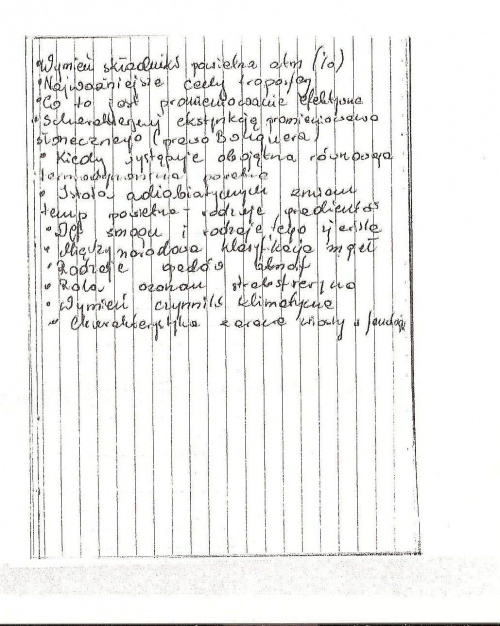 Wymień składniks powietrza atm (%)
• Najważniejsze cechy troposfery
• Co to jest promieniowanie efektywne
• Scharakteryzuj ekstynkcję promieniowania
słonecznego (prawo Bouguera)
• Kiedy występuje obojętna równowaga
termodynamiczna powietrza
• Istota adiabatycznych zmian
temp powietrza - rodzaje gradientów
• Def smogu i rodzaje tego zjawiska
• Międzynarodowa klasyfikacja mgieł
• Rodzaje opadów atmosf
• Rola ozonu stratosferycznego
• Wymień czynniks klimatyczne
• Charakterystyka zarania wiosny